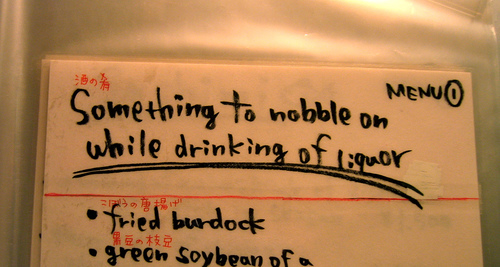 酒の肴
MENU①
Something to nobble on
while drinking of liquor
ごぼうの唐揚げ
• fried burdock
黒豆の枝豆
• green soybean of a